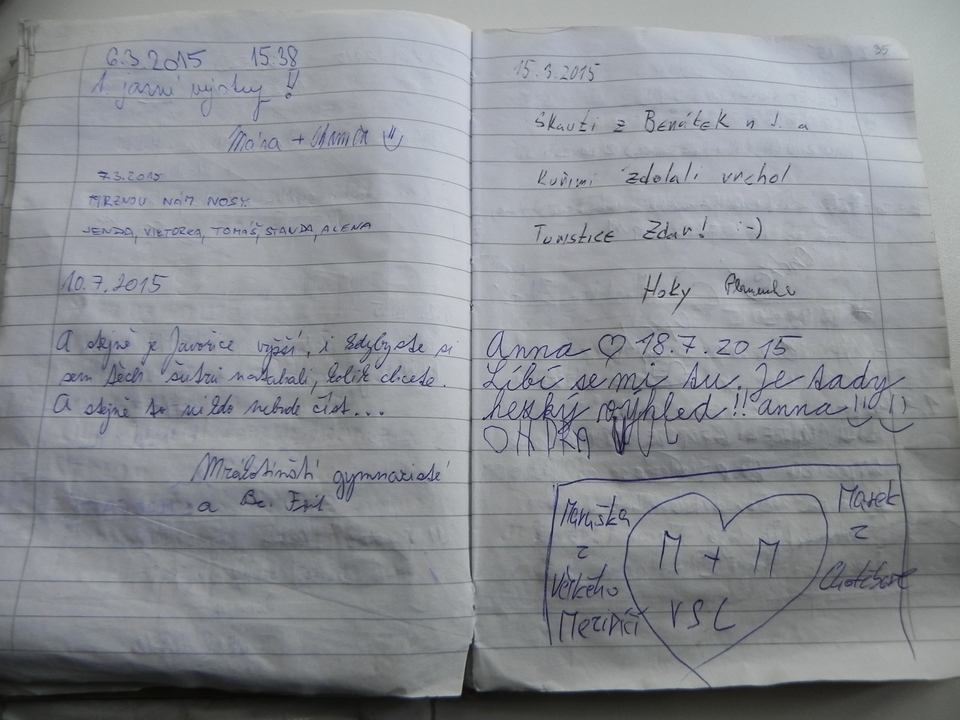 6.3.2015 15:38
1. jarní výstup!!
Mára +
7.3.2015
MRZNOU NÁM NOSY.
JENDA, VIKTORKA, TOMÁŠ, STANDA, ALENA
10.7.2015
A stejně je Javořice vyšší, i kdybyste si
sem těch šutrů natahali, kolik chcete.
A stejně to nikdo nebude číst...
gymnazisté
a Bc.
35
15.3.2015
Skauti z Benátek n J. a
Kuřimi zdolali vrchol
Turistice Zdar! :-)
Hoky
Anna ♡ 18.7.2015
Líbí se mi tu. Je tady
hezký výhled!! anna !! !!
Maruška
z
Velkého
Meziříčí
M + M
VSL
Marek
z
Chotěboře